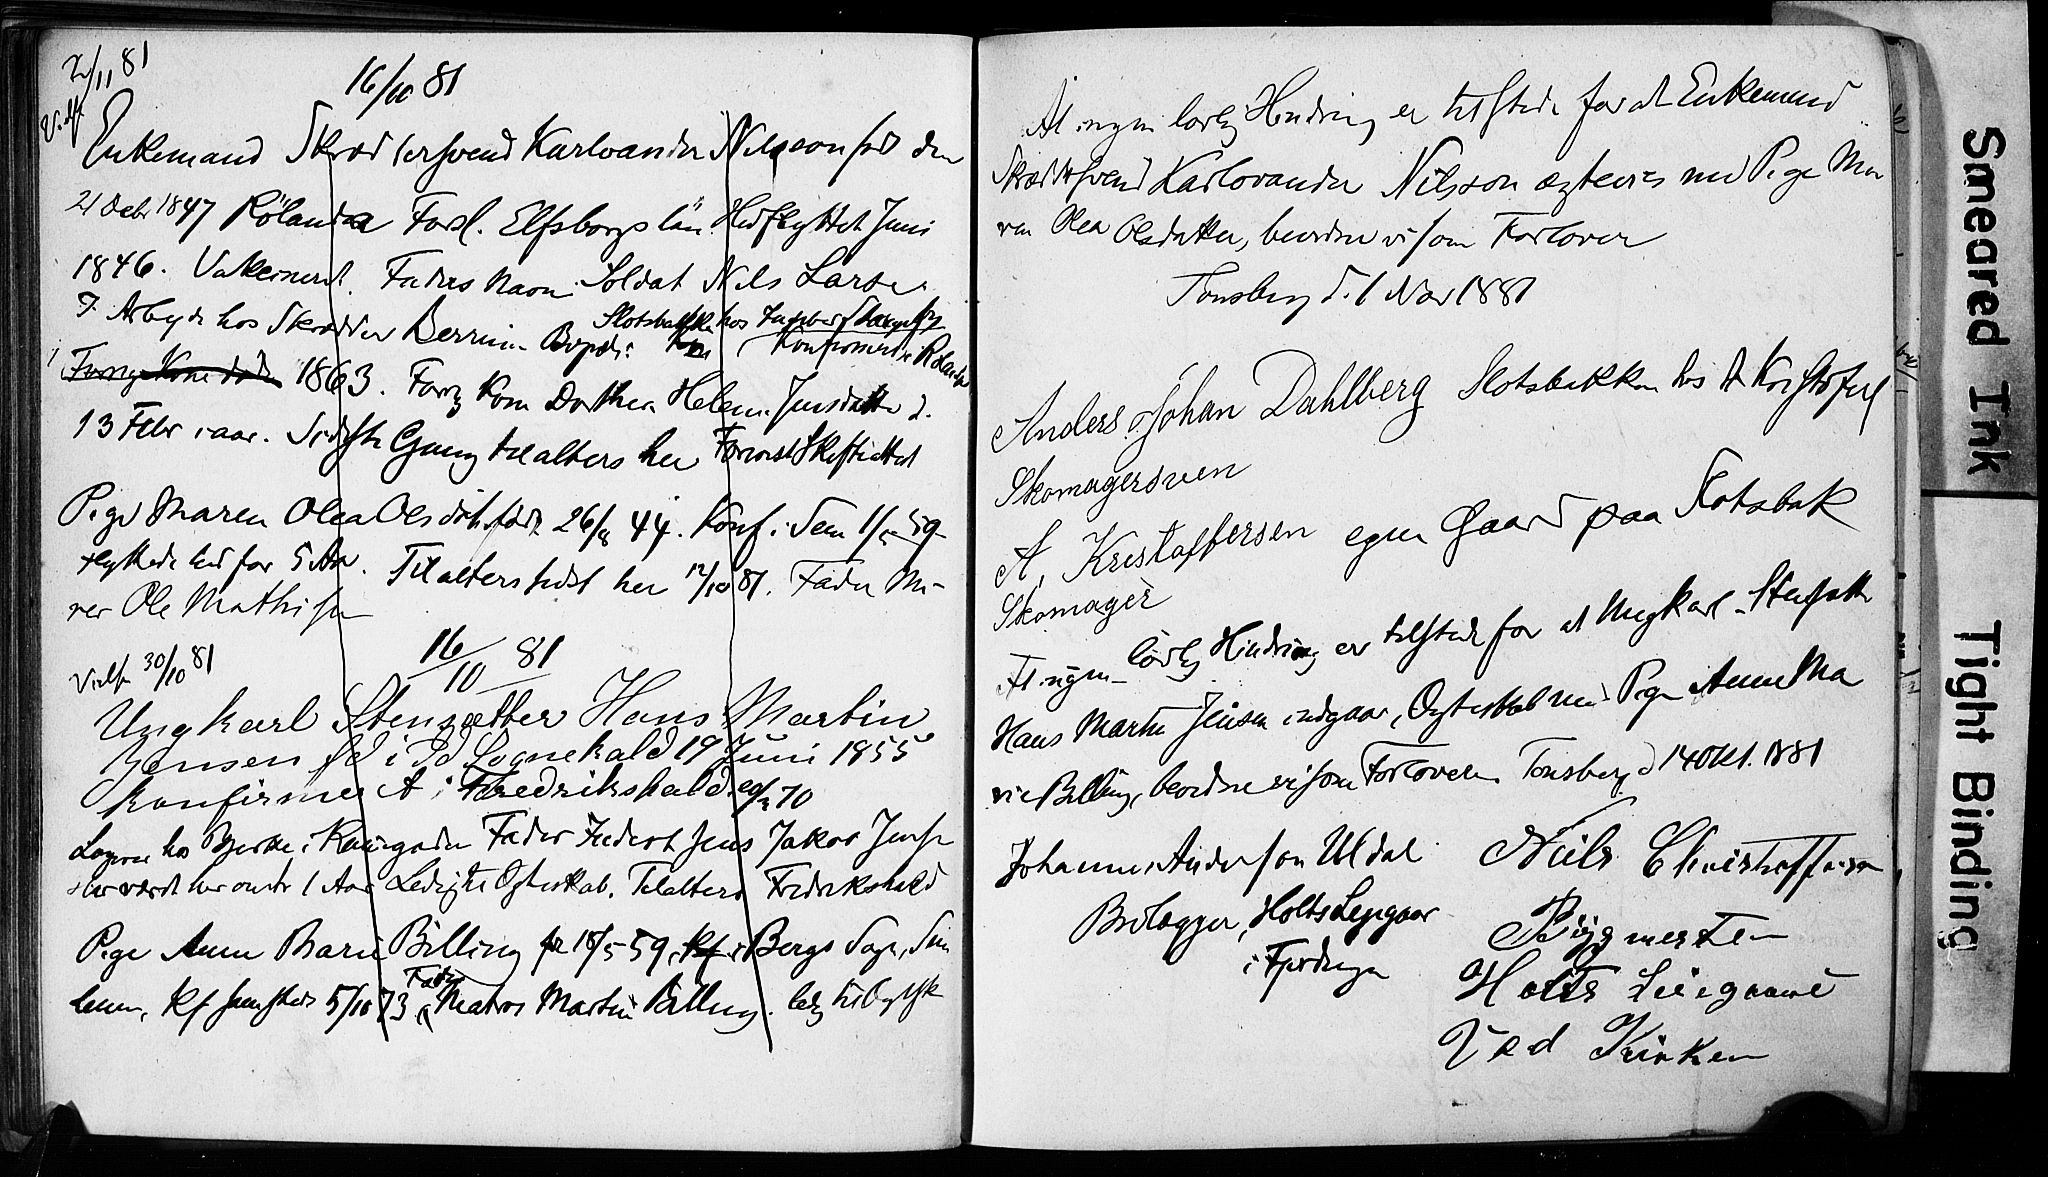 2/11 81
Viet
16/10 81
Enkemand Skrædersvend Karlvander Nilsson født den
21 Decbr 1847 Rölanda Forsl. Elfsborgs län Hidflyttet Juni
1846. Vakcineret. Faders Navn Soldat Nils Larse
I Arbejde hos Skrædder Berrum. Bopæl: Slotsbakken hos
Konfirmeret i Rölanda
i 1863. Forrig Kone Dorthea Helene Jensdatter d.
13 Febr i aar. Sidste Gang tilalters her
Pige Maren Olea Olsdatter født 26/8 44. Konf. i Sem 1/ 59
flyttede hid for 5 Aar. Tilalters sidst her 12/10 81. Fader Mu-
rer Ole Mathisen
Vielse 30/10 81
16/10 81
Ungkarl Stensætter Hans Martin
Jensen fd i Id Sognekald 19 Juni 1855
konfirmeret i Fredrikshald 70
Logerer hos Bjerke i Fader Jens Jakob Jensen
Har været her omtr 1 Aar Ledig til Ægteskab. Tilalters Fredrikshald
Pige Anne Marie Billing 18/5 59, i Bergs Sogn, Smaa
lenene, Kf sammesteds 5/10 73, Fader Matros Martin Billing. ledig til Ægtesk
At ingen lovlig Hindring er tilstede for at Enkemand
Skræddersvend Karlovander Nilsson ægtevies med Pige Ma
ren Olea Olsdatter, bevidne vi som Forlover
Tønsberg d. 1 Nov 1881
Anders Johan Dahlberg Slotsbakken hos A Kristofers
Skomagersven
A. Kristoffersen egen Gaard paa Slotsbak
Skomager
At ingen lovlig Hindring er tilstede for at Ungkarl Stensætter
Hans Martin Jensen indgaar Ægteskab med Pige Anne Ma
rie Billing, bevidne vi som Forlovere. Tønsberg d 14 Okt. 1881
Johannes Anderson Uldal
Brolægger, Holts Lejegaar
i Fjerdingen
Niels Christoffersen
Bygmester
Holts Leiegaard
Ved Kirken
Smeared Ink
Tight Binding